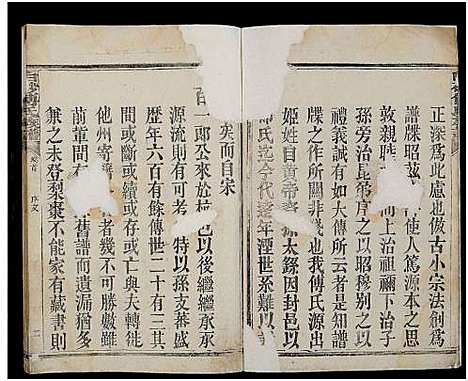 正深爲此慮也仿古小宗法創爲
譜牒昭茲 使人篤源本之思
敦親睦 而上治祖禰下治子
孫旁治昆弟序之以昭穆别之以
禮義誠有如大傳所云者是譜
牒之作所關非淺哉我傅氏源出
姬姓自黄帝裔孫大繇因封邑以
氏迄今代遠年湮世系難以
矣而自宋
百一郎公來於 邑以後繼繼承承
源流則可 特以孫支蕃盛
歷年六百有餘傳世二十有三其
間或斷或續或存或亡與夫轉徙
他州寄 者幾不可勝數雖
前董間 舊譜而遺漏猶多
兼之未登梨棗不能家有藏書則
卷首
序文
二